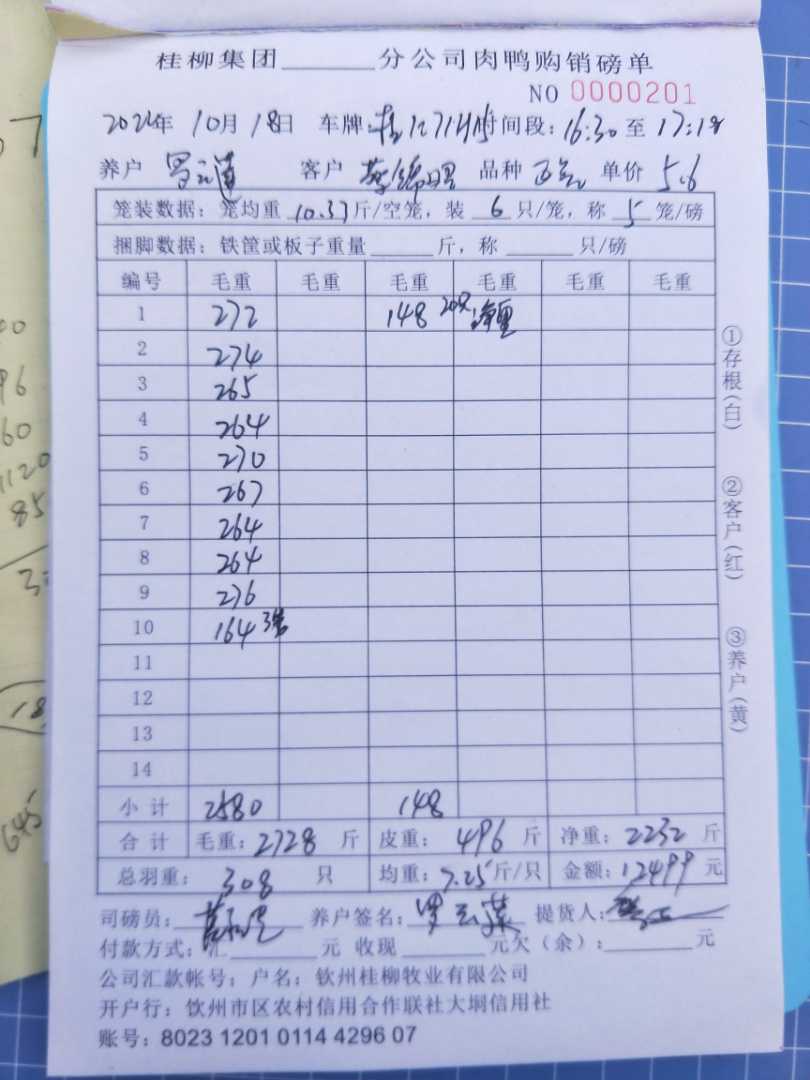 桂柳集团______分公司肉鸭购销磅单
NO 0000201
年 10月 18日 车牌: 时间段: 16:30 至 17:18
养户 客户 品种 单价 5.6
笼装数据: 笼均重 10.37 斤/空笼, 装 6 只/笼, 称 5 笼/磅
捆脚数据: 铁筐或板子重量______斤, 称______只/磅
编号 毛重 毛重 毛重 毛重 毛重 毛重
1 272 148 20只 净重
2 274
3 265
4 264
5 270
6 267
7 264
8 264
9 276
10 164 3笼
11
12
13
14
小计 2580 148
合计 毛重: 2728 斤 皮重: 496 斤 净重: 2232 斤
总羽重: 308 只 均重: 7.25 斤/只 金额: 12499 元
司磅员: 养户签名: 提货人:
付款方式: 汇______元 收现______元欠(余):______元
公司汇款帐号: 户名: 钦州桂柳牧业有限公司
开户行: 钦州市区农村信用合作联社大垌信用社
账号: 8023 1201 0114 4296 07
①存根(白)
②客户(红)
③养户(黄)
96
60
1120
85
18
645